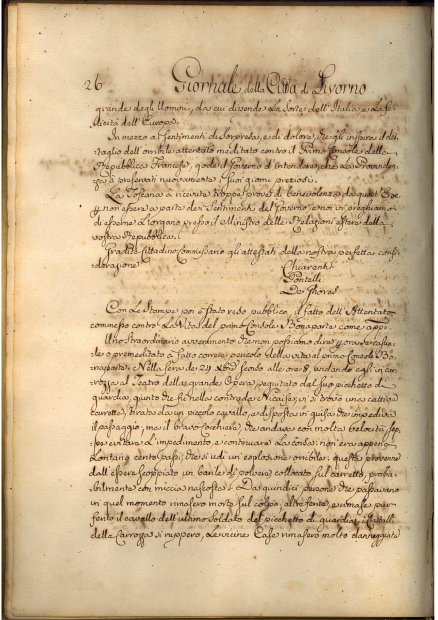 26 Giornale della Città di Livorno
grande degli Uomini, da cui dipende la Sorte dell'Italia e la fe-
licità dell'Europa.
In mezzo ai Sentimenti di Sorpresa, e di dolore, che gli inspira il det-
taglio dell'orribile attentato meditato contro il Primo Console della
Repubblica Francese, gode il Governo d'intendere, che la Provviden-
za à preservati nuovamente i suoi giorni preziosi.
La Toscana à ricevute troppe prove di benevolenza da quest'Eroe
non essere a parte dei Sentimenti del Governo, e noi vi preghiamo
di esserne l'organo presso il Ministro delle Relazioni estere della
vostra Repubblica.
Gradite Cittadino Commissario gli attestati della nostra perfetta consi-
derazione
Chiarenti
Pontelli
De Ghores
Con le Stampe poi è stato reso pubblico il fatto dell'Attentato
commesso contro la Vita del primo Console Bonaparte come appr.
Uno straordinario avvenimento che non possiamo dire ancora casua-
le o premeditato à fatto correre pericolo della vita al primo Console Bo-
naparte. Nella sera de 24 Xbre scorso alle ore 8, andando egli in car-
rozza al Teatro della grande Opera, seguitato dal suo picchetto di
guardia, giunto che fù nella contrada Nicaise, vi si trovò una cattiva
carretta, tirata da un piccolo cavallo, e disposta in guisa che impediva
il passaggio, ma il bravo Cocchiere, che andava con molta velocità, sep-
pe evitare l'impedimento, e continuare la corsa: non era appena
lontano cento passi, che si udì un esplosione orribile: questa proveniva
dall'essere scoppiato un barile di polvere collocato sul carretto, proba-
bilmente con miccia nascosta. Da quindici persone che passavano
in quel momento rimasero morte sul colpo, altre ferite, e rimase pur
ferito il cavallo dell'ultimo soldato del picchetto di guardia, i Cristalli
della Carrozza si ruppero, le vicine Case rimasero molto danneggiate